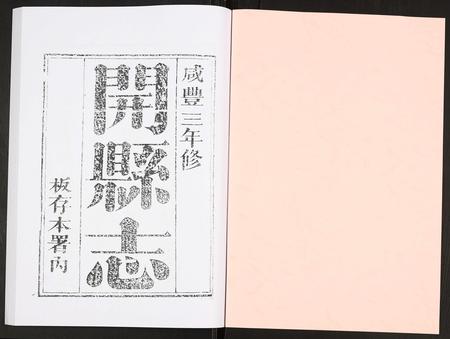 咸豐三年修
開縣志
板存本署內